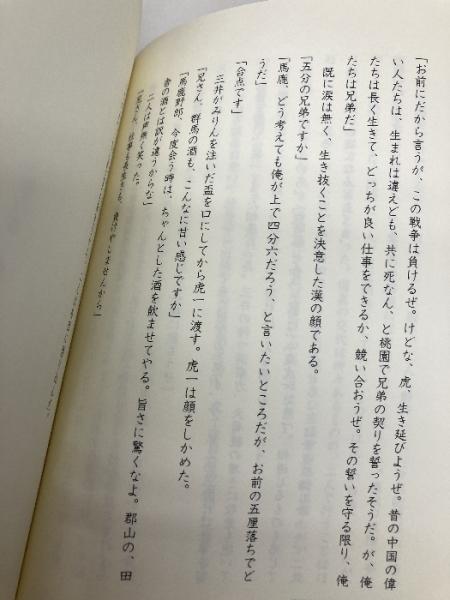 「お前にだから言うが、この戦争は負けるぜ。けどな、虎、生き延びようぜ。昔の中国の偉
い人たちは、生まれは違えども、共に死なん、と桃園で兄弟の契りを誓ったそうだ。が、俺
たちは長く生きて、どっちが良い仕事をできるか、競い合おうぜ。その誓いを守る限り、俺
たちは兄弟だ」
既に涙は無く、生き抜くことを決意した漢の顔である。
「五分の兄弟ですか」
「馬鹿、どう考えても俺が上で四分六だろう、と言いたいところだが、お前の五厘落ちでど
うだ」
「合点です」
三井がみりんを注いだ盃を口にしてから虎一に渡す。虎一は顔をしかめた。
「兄さん。群馬の酒も、こんなに甘い感じですか」
「馬鹿野郎、今度会う時は、ちゃんとした酒を飲ませてやる。旨さに驚くなよ。郡山の、田
舎の酒とは訳が違うからな」
二人は声無く笑った。
「兄さん、仕事も長生きも、負けやしませんから」